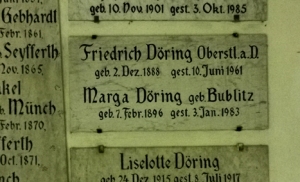 geb. 10. Nov. 1901 gest. 3. Okt. 1985
Gebhardl
Seyfferlh
Nov. 1865.
Friedrich Döring Oberstl. a. D.
geb. 2. Dez. 1888 gest. 10. Juni 1961
Marga Döring geb. Bublitz
geb. 7. Febr. 1896 gest. 3. Jan. 1983
akel
Münch
Febr. 1870.
fferlh
Oct. 1871,
Münch
Liselotte Döring
geb. 24. Dez. 1915 gest. 8. Juli 1917